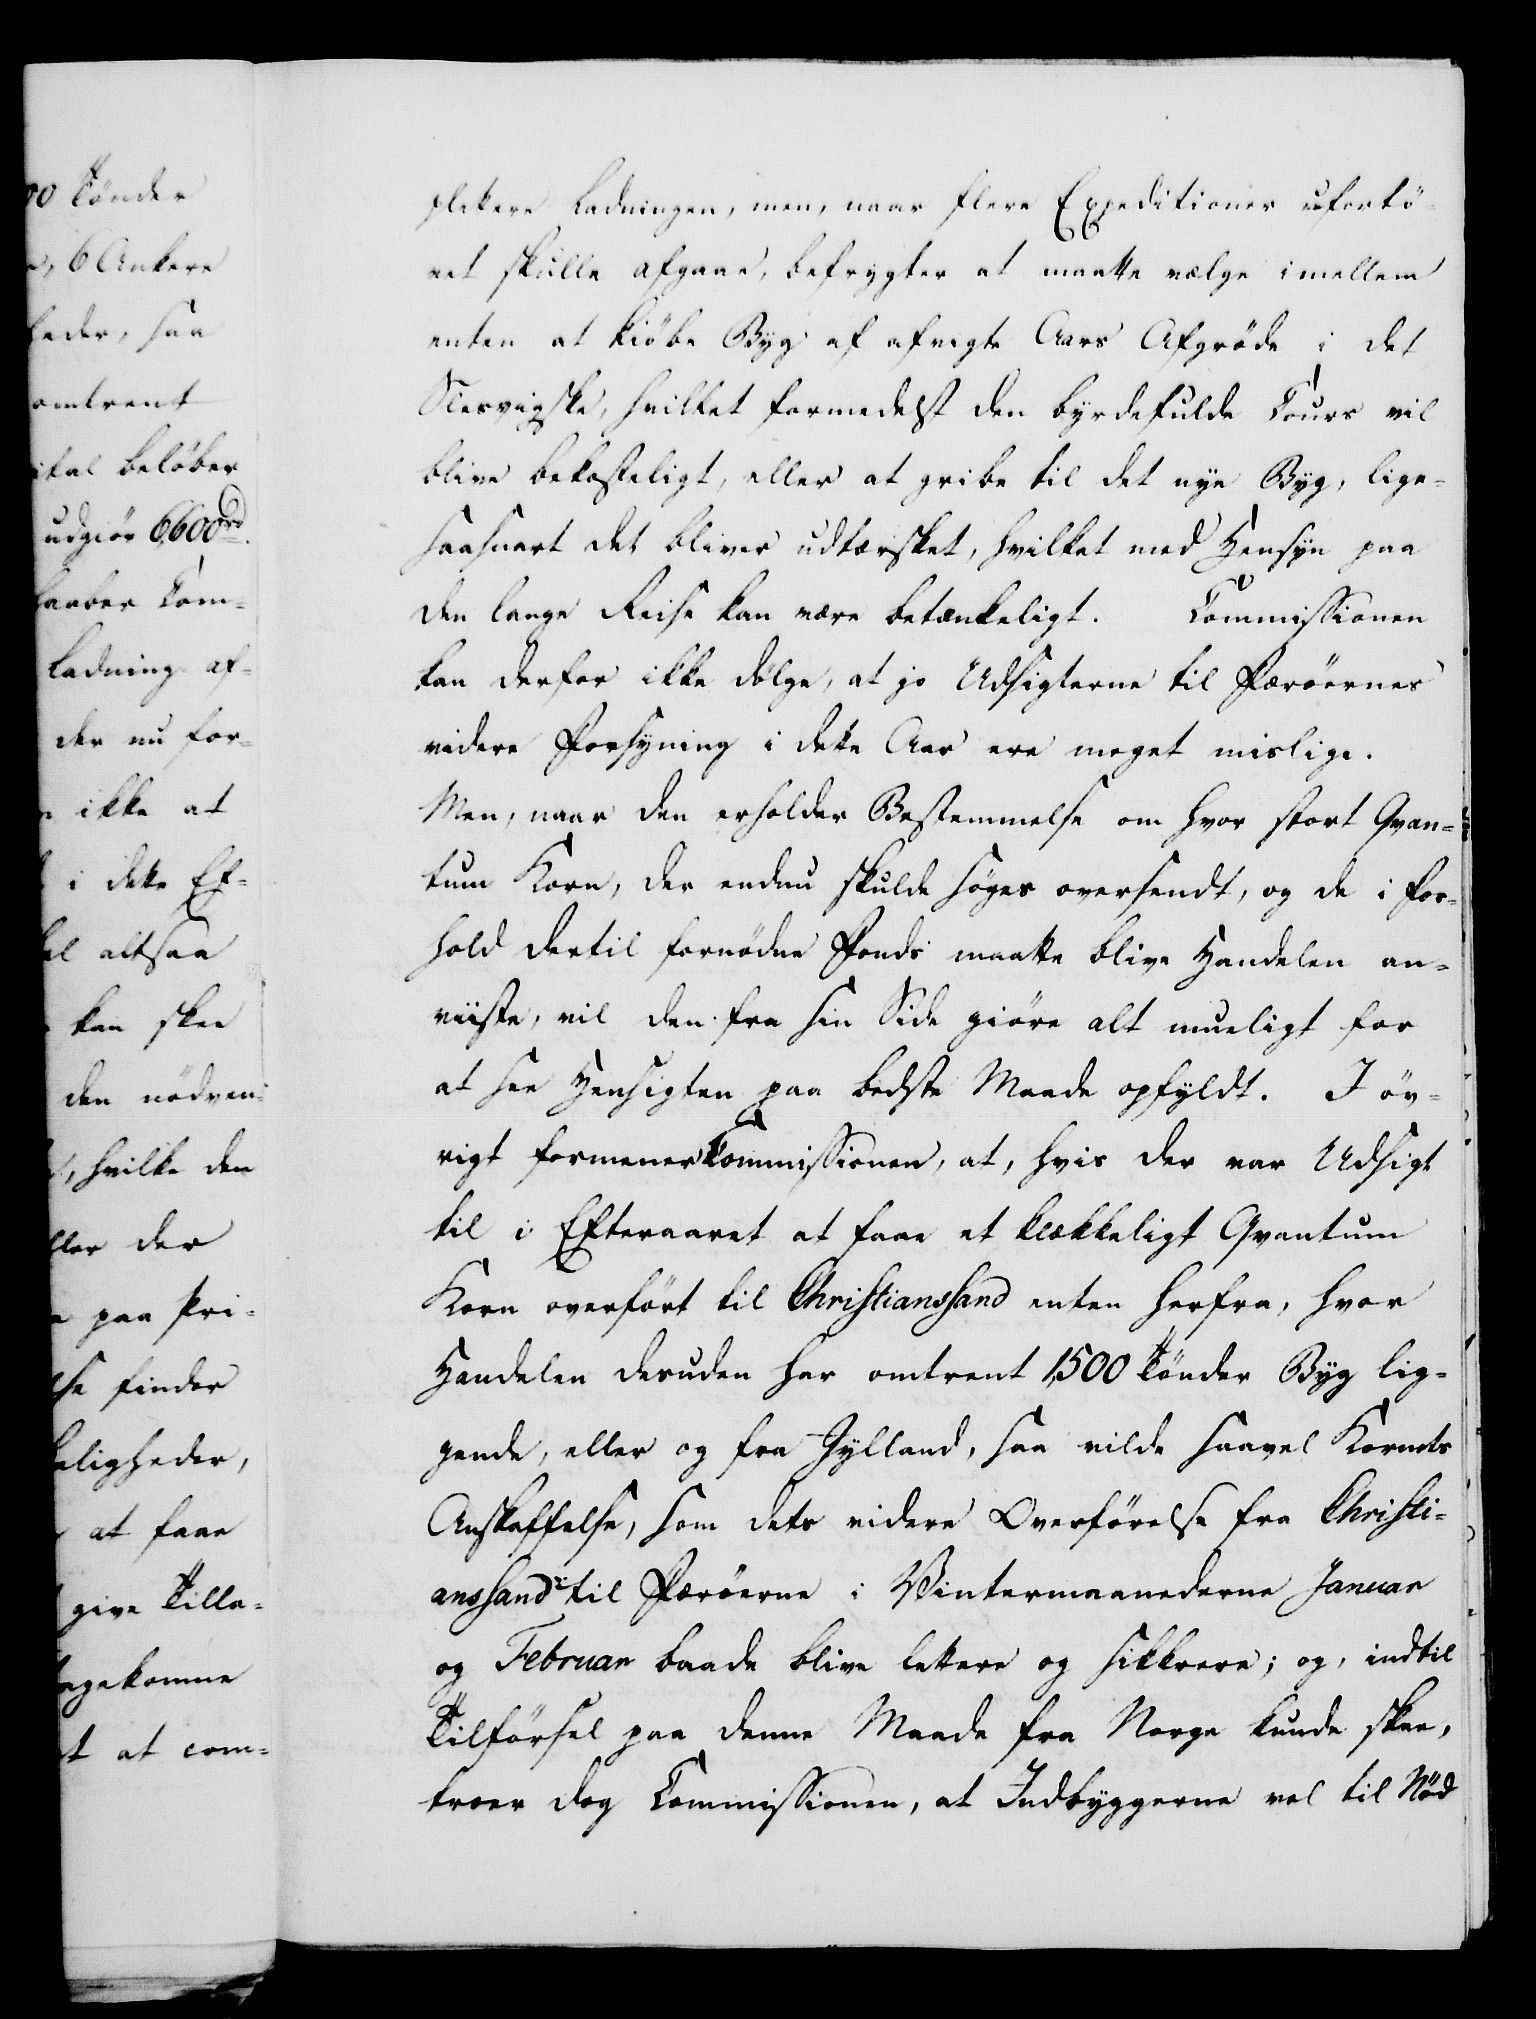 00 Tønder
6 Ankere
heder, saa
omtrent
beløber
udgiør 6600rd.
haaber Com-
Ladning af-
der nu for-
ikke at
i dette Ef-
altsaa
kan skee
den nødven-
hvilke den
eller der
paa Pri-
finder
ligheder,
at faae
give Tilla-
komne
at com-
plettere Ladningen, men, naar flere Expeditioner ufortø-
vet skulle afgaae, befrygter at maatte vælge imellem
enten at kiøbe Byg af afvigte Aars Afgrøde i det
Slesvigske, hvilket formedelst den byrdefulde Cours vil
blive bekosteligt, eller at gribe til det nye Byg, lige-
saasnart det bliver udtærsket, hvilket med Hensyn paa
den lange Reise kan være betænkeligt. Commissionen
kan derfor ikke dølge, at jo Udsigterne til Færøernes
videre Forsyning i dette Aar ere meget mislige.
Men, naar den erholder Bestemmelse om hvor stort Qvan-
tum Korn, der endnu skulde søges oversendt, og de i For-
hold dertil fornødne Fonds maatte blive Handelen an-
viiste, vil den fra sin Side giøre alt mueligt for
at see Hensigten paa bedste Maade opfyldt. I øv-
rigt formener Commissionen, at, hvis der var Udsigt
til i Efteraaret at faae et klækkeligt Qvantum
Korn overført til Christianssand enten herfra, hvor
Handelen desuden har omtrent 1500 Tønder Byg lig-
gende, eller og fra Jylland, saa vilde saavel Kornets
Anskaffelse, som dets videre Overførelse fra Christi-
anssand til Færøerne i Vintermaanederne Januar
og Februar baade blive lettere og sikkrere; og, indtil
Tilførsel paa denne Maade fra Norge kunde skee,
troer dog Commissionen, at Indbyggerne vel til Nød